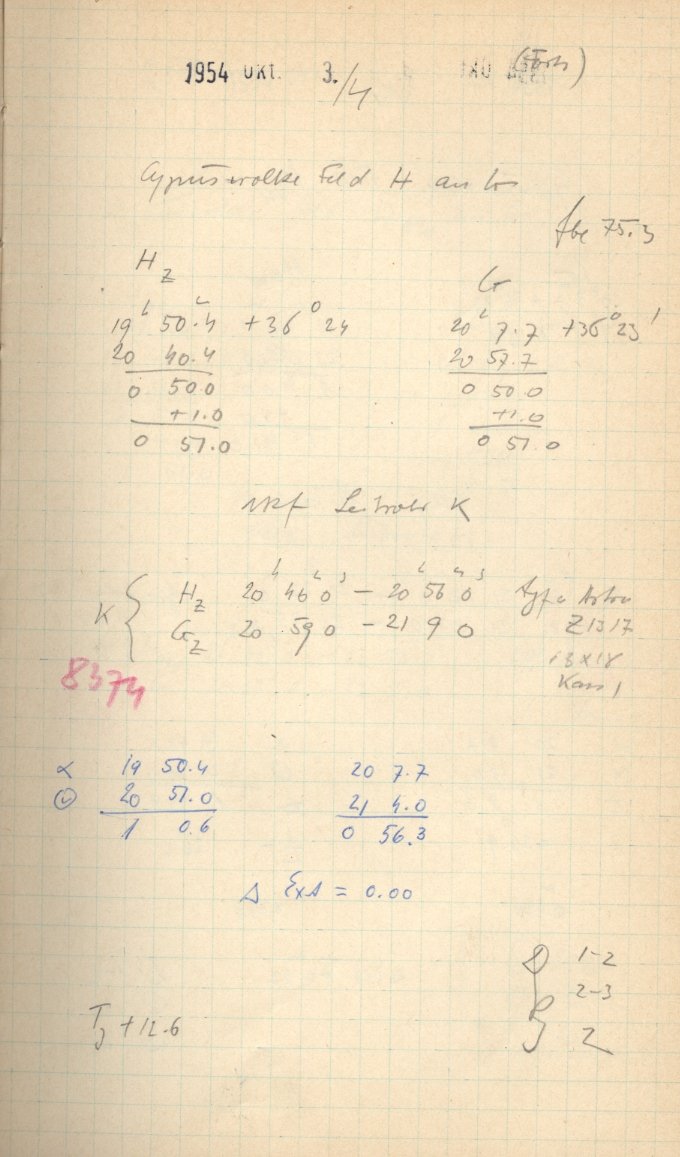 1954 Okt. 3./4 (Forts)
Cygnuswolke Feld H an
fbe 75.3
H_Z G
19^h 50.4 +36° 24 20^h 7.7 +36° 23'
20 40.4 20 57.7
0 50.0 0 50.0
+1.0 +1.0
0 51.0 0 51.0
Leitrohr K
K { H_Z 20^h 46^m 0^s – 20^h 56^m 0^s Agfa Astro
G_Z 20 59 0 – 21 9 0 Z 1317
13x18
8374 Kass 1
α 19 50.4 20 7.7
20 51.0 21 4.0
1 0.6 0 56.3
Δ Ext = 0.00
D 1-2
2-3
T +12.6 2